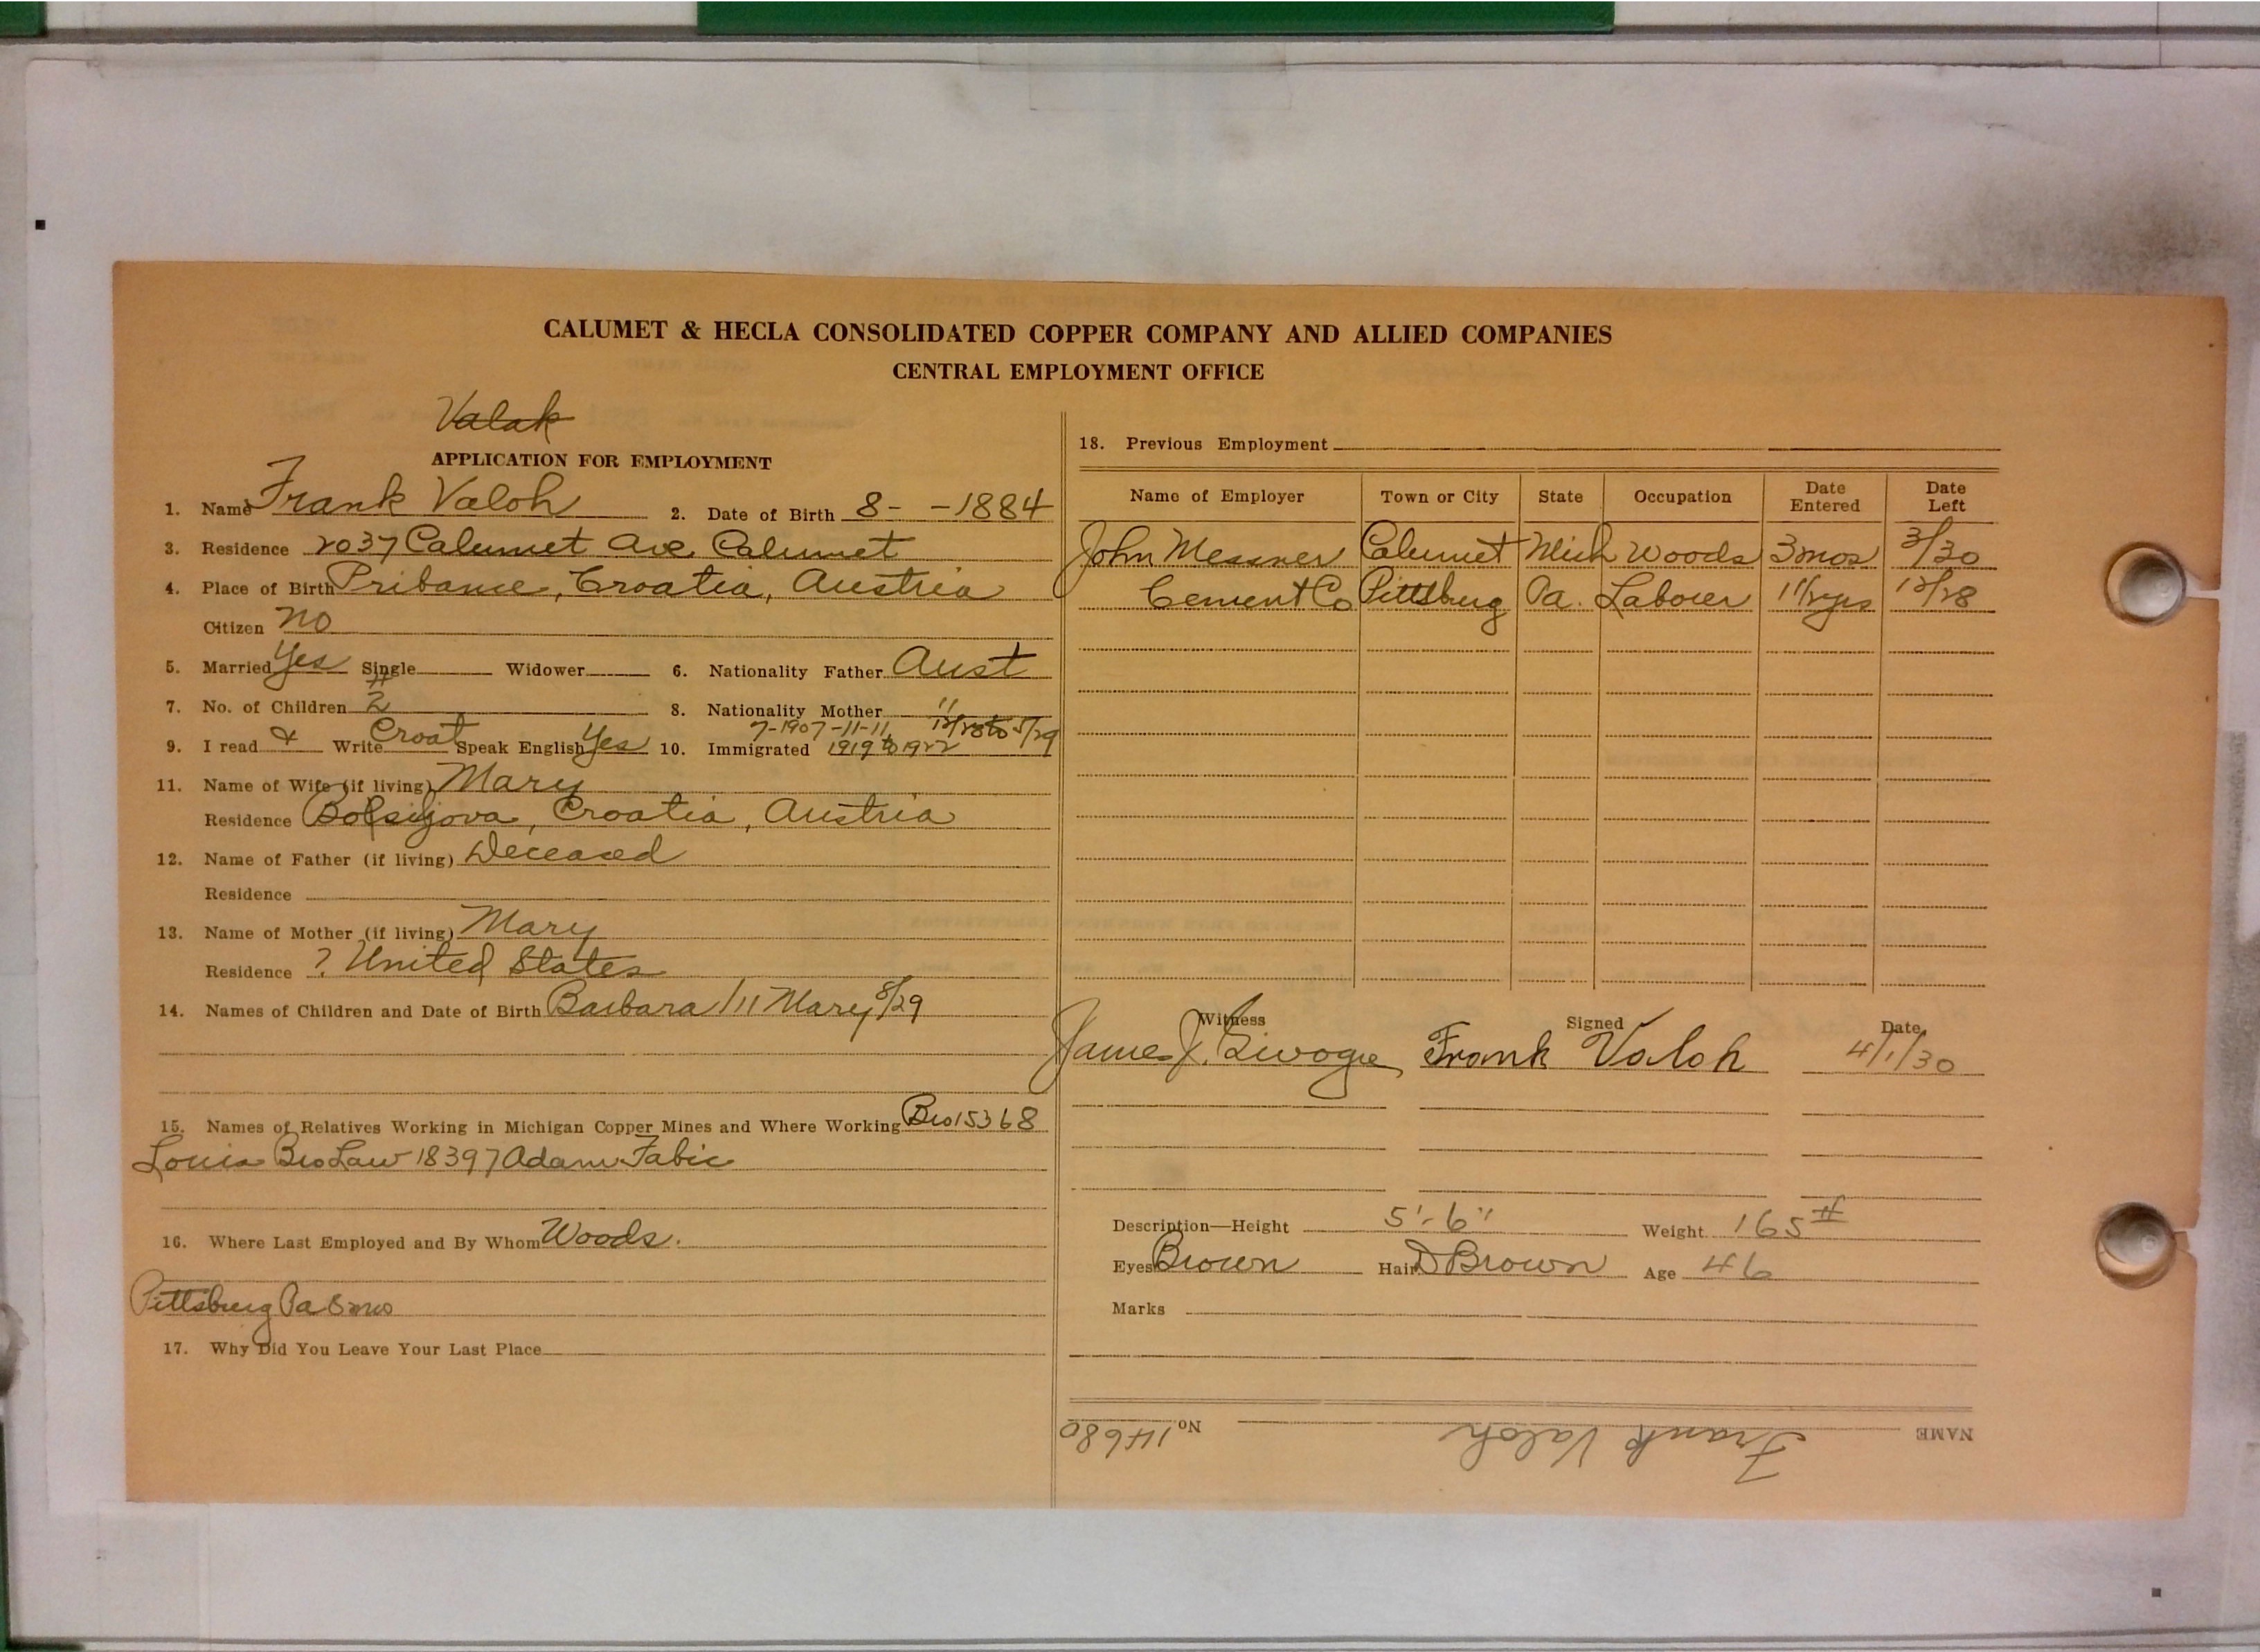 CALUMET & HECLA CONSOLIDATED COPPER COMPANY AND ALLIED COMPANIES
CENTRAL EMPLOYMENT OFFICE
Valak
APPLICATION FOR EMPLOYMENT
1. Name Frank Valoh 2. Date of Birth 8- -1884
3. Residence 2037 Calumet Ave Calumet
4. Place of Birth Pribanic, Croatia, Austria
Citizen no
5. Married Yes Single Widower 6. Nationality Father Aust
7. No. of Children 2 8. Nationality Mother "
9. I read & Write Croat Speak English Yes 10. Immigrated 7-1907-11-11, 1919 to 1922 12/28 to 5/29
11. Name of Wife (if living) Mary
Residence Croatia, Austria
12. Name of Father (if living) Deceased
Residence
13. Name of Mother (if living) Mary
Residence ? United States
14. Names of Children and Date of Birth Barbara /11 Mary 8/29
15. Names of Relatives Working in Michigan Copper Mines and Where Working Bro 15368
Louis Bro Law 18397 Adam Fabic
16. Where Last Employed and By Whom Woods.
Pittsburg Pa 8 mos
17. Why Did You Leave Your Last Place
18. Previous Employment
Name of Employer Town or City State Occupation Date Entered Date Left
John Messner Calumet Mich Woods 3 mos 3/30
Cement Co Pittsburg Pa. Laborer 1 1/2 yrs 12/28
Witness Signed Date
James J. Frank Valoh 4/1/30
Description—Height 5'-6" Weight 165#
Eyes Brown Hair D Brown Age 46
Marks
NAME Frank Valoh No 14680